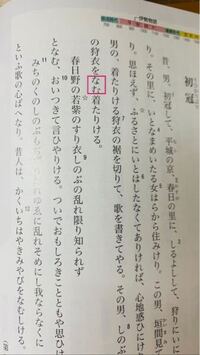 伊勢物語
初冠
昔、男、初冠して、平城の京、春日の里に、しるよしして、狩りにい
り。その里に、いとなまめいたる女はらから住みけり。この男、垣間見て
り。思ほえず、ふるさとにいとはしたなくてありければ、心地惑ひにけ
男の、着たりける狩衣の裾を切りて、歌を書きてやる。その男、しのぶ
の狩衣をなむ着たりける。
春日野の若紫のすり衣しのぶの乱れ限り知られず
となむ、おいつきて言ひやりける。ついでおもしろきことともや思ひけ
みちのくのしのぶもぢずりたれゆゑに乱れそめにし我ならなくに
といふ歌の心ばへなり。昔人は、かくいちはやきみやびをなむしける。(第